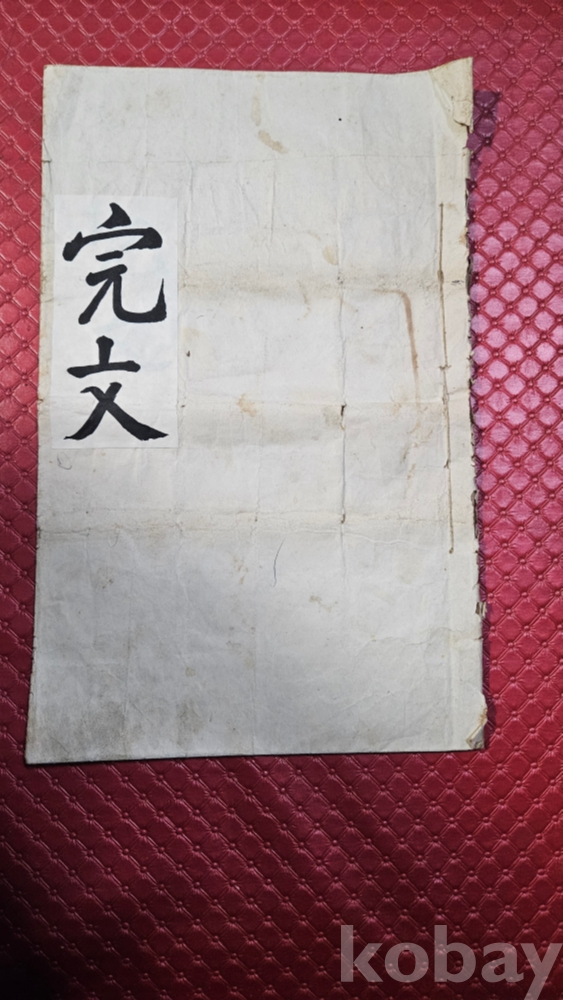 完文
kobay